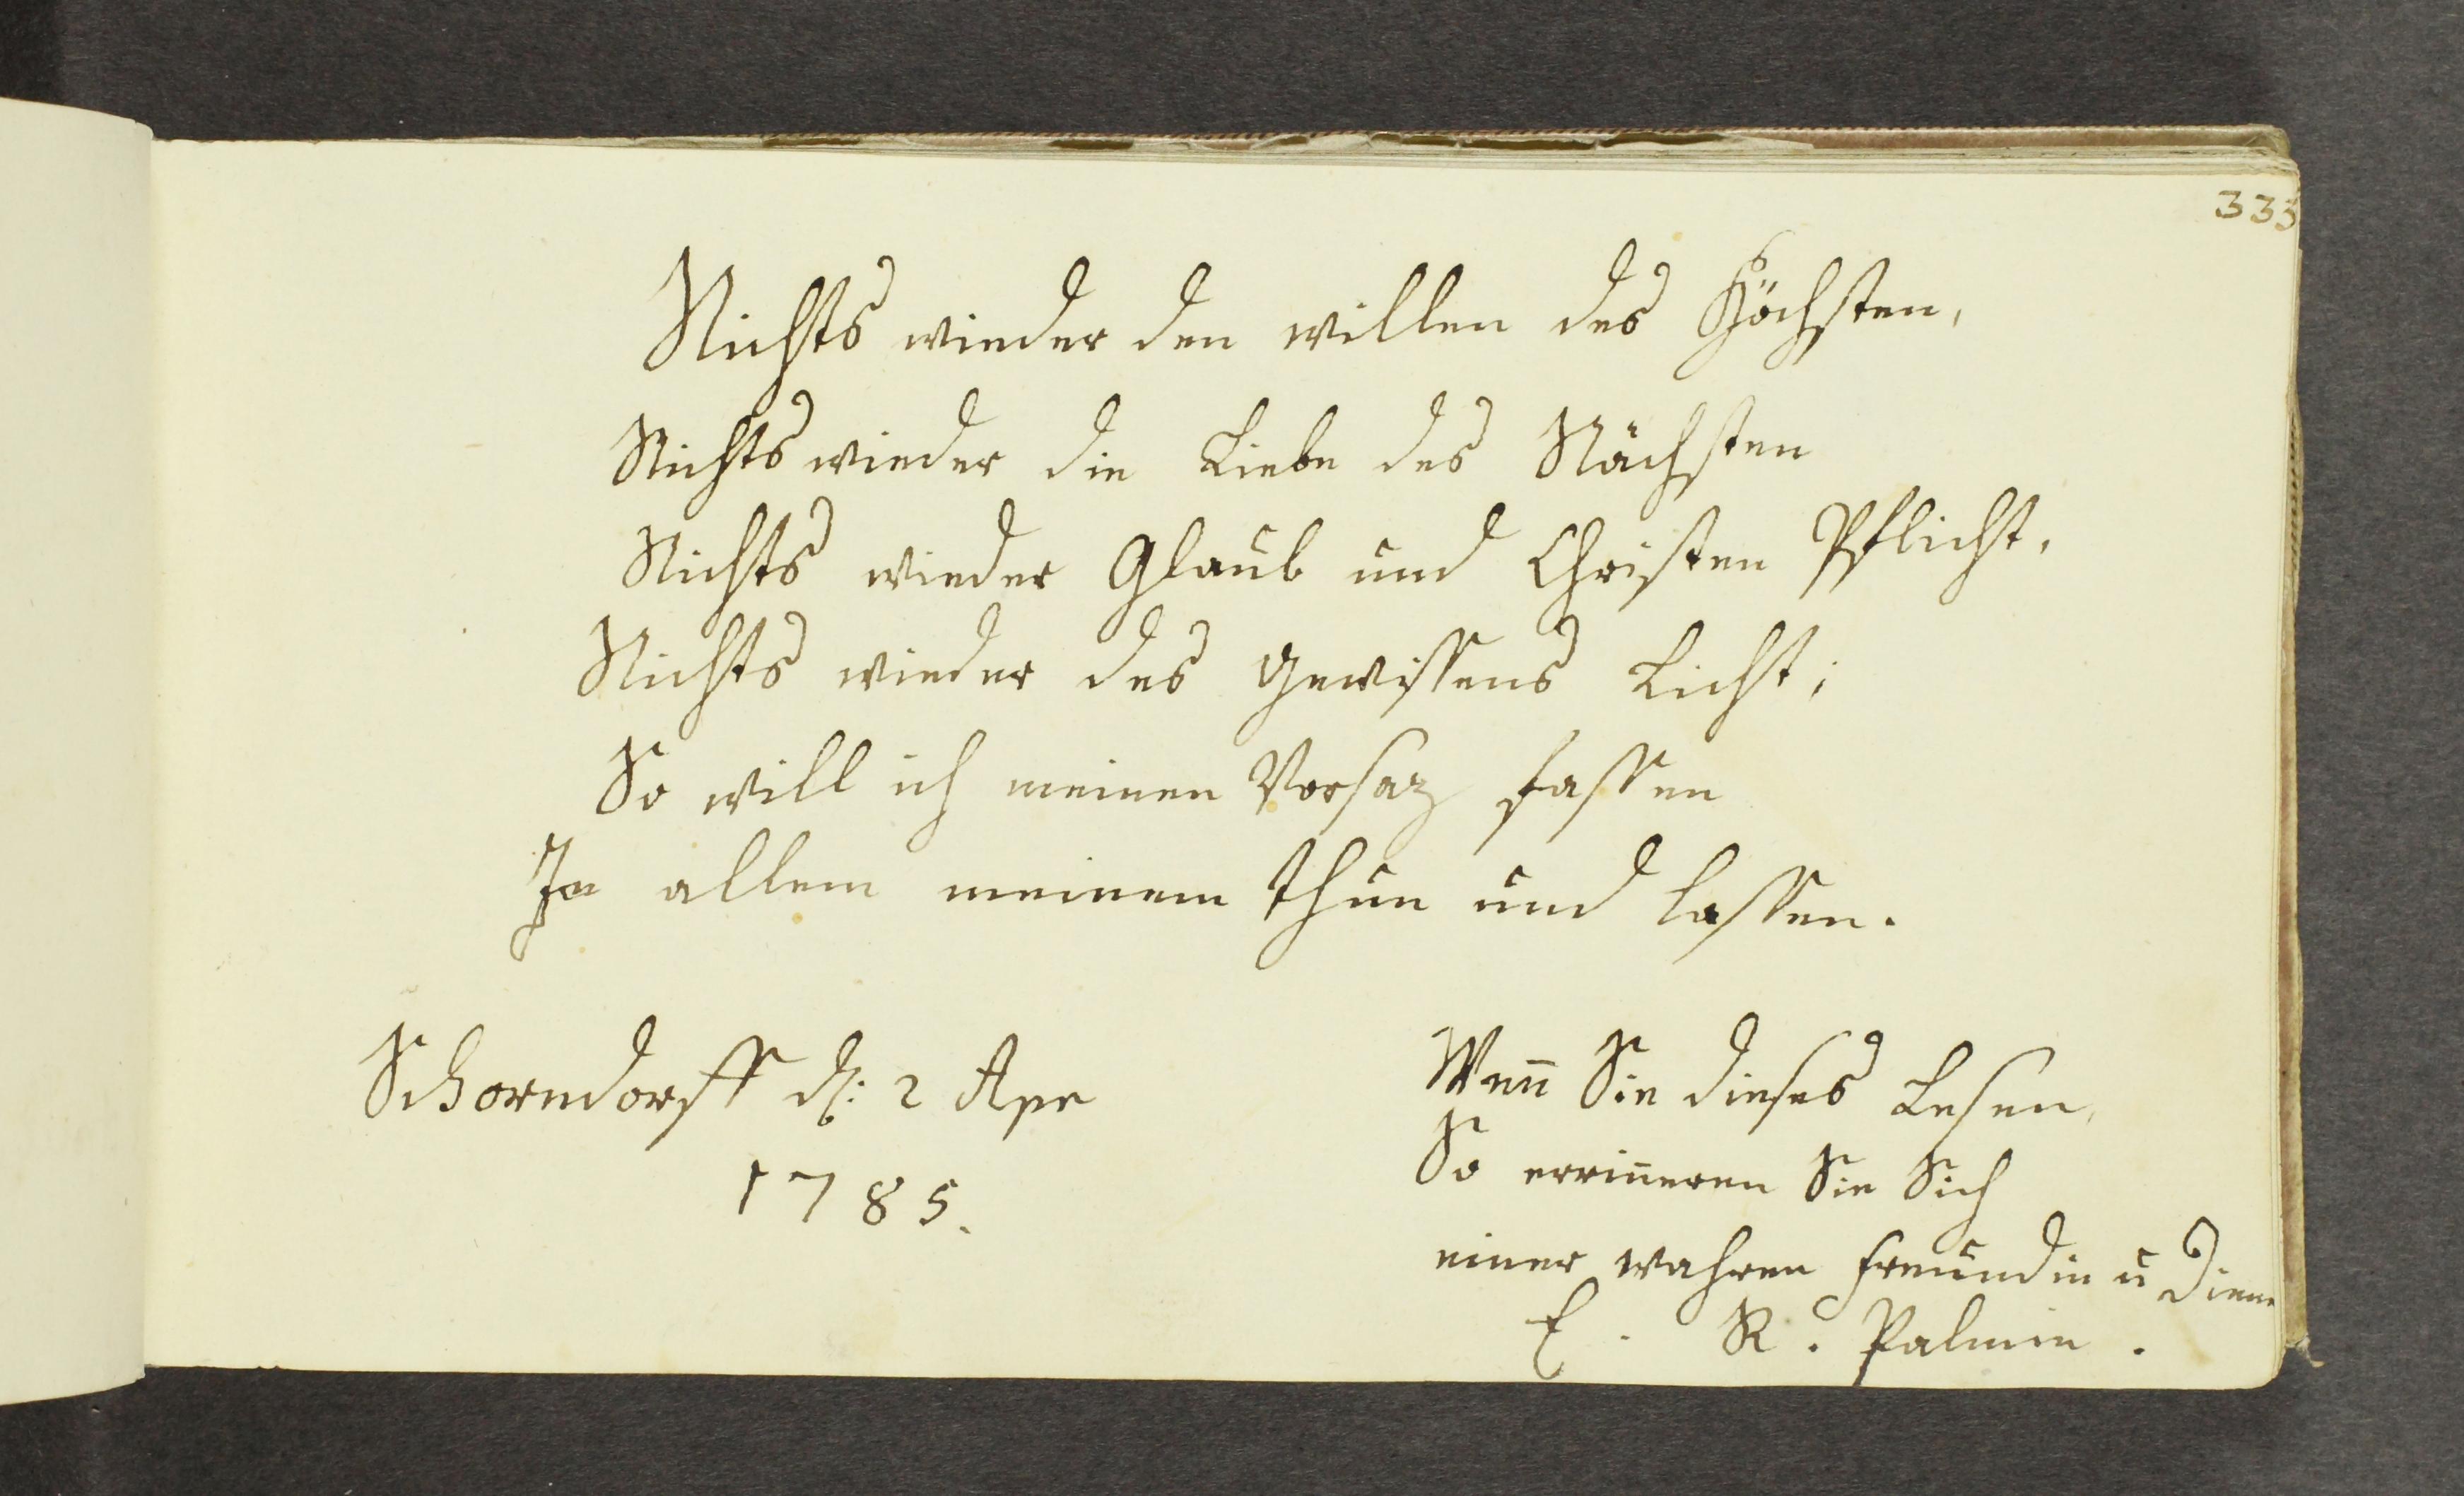 333
Nichts wieder den willen des Höchsten,
Nichts wieder die Liebe des Nächsten
Nichts wieder Glaub und Christen Pflicht,
Nichts wieder des Gewissens Licht;
So will ich meinen Vorsaz fassen
In allem meinem thun und lassen.
Schorndorff d: 2 Apr
1785.
Wen̄ Sie dieses Lesen,
So errin̄eren Sie Sich
einer wahren freundin u Diene
E. R. Palmin.